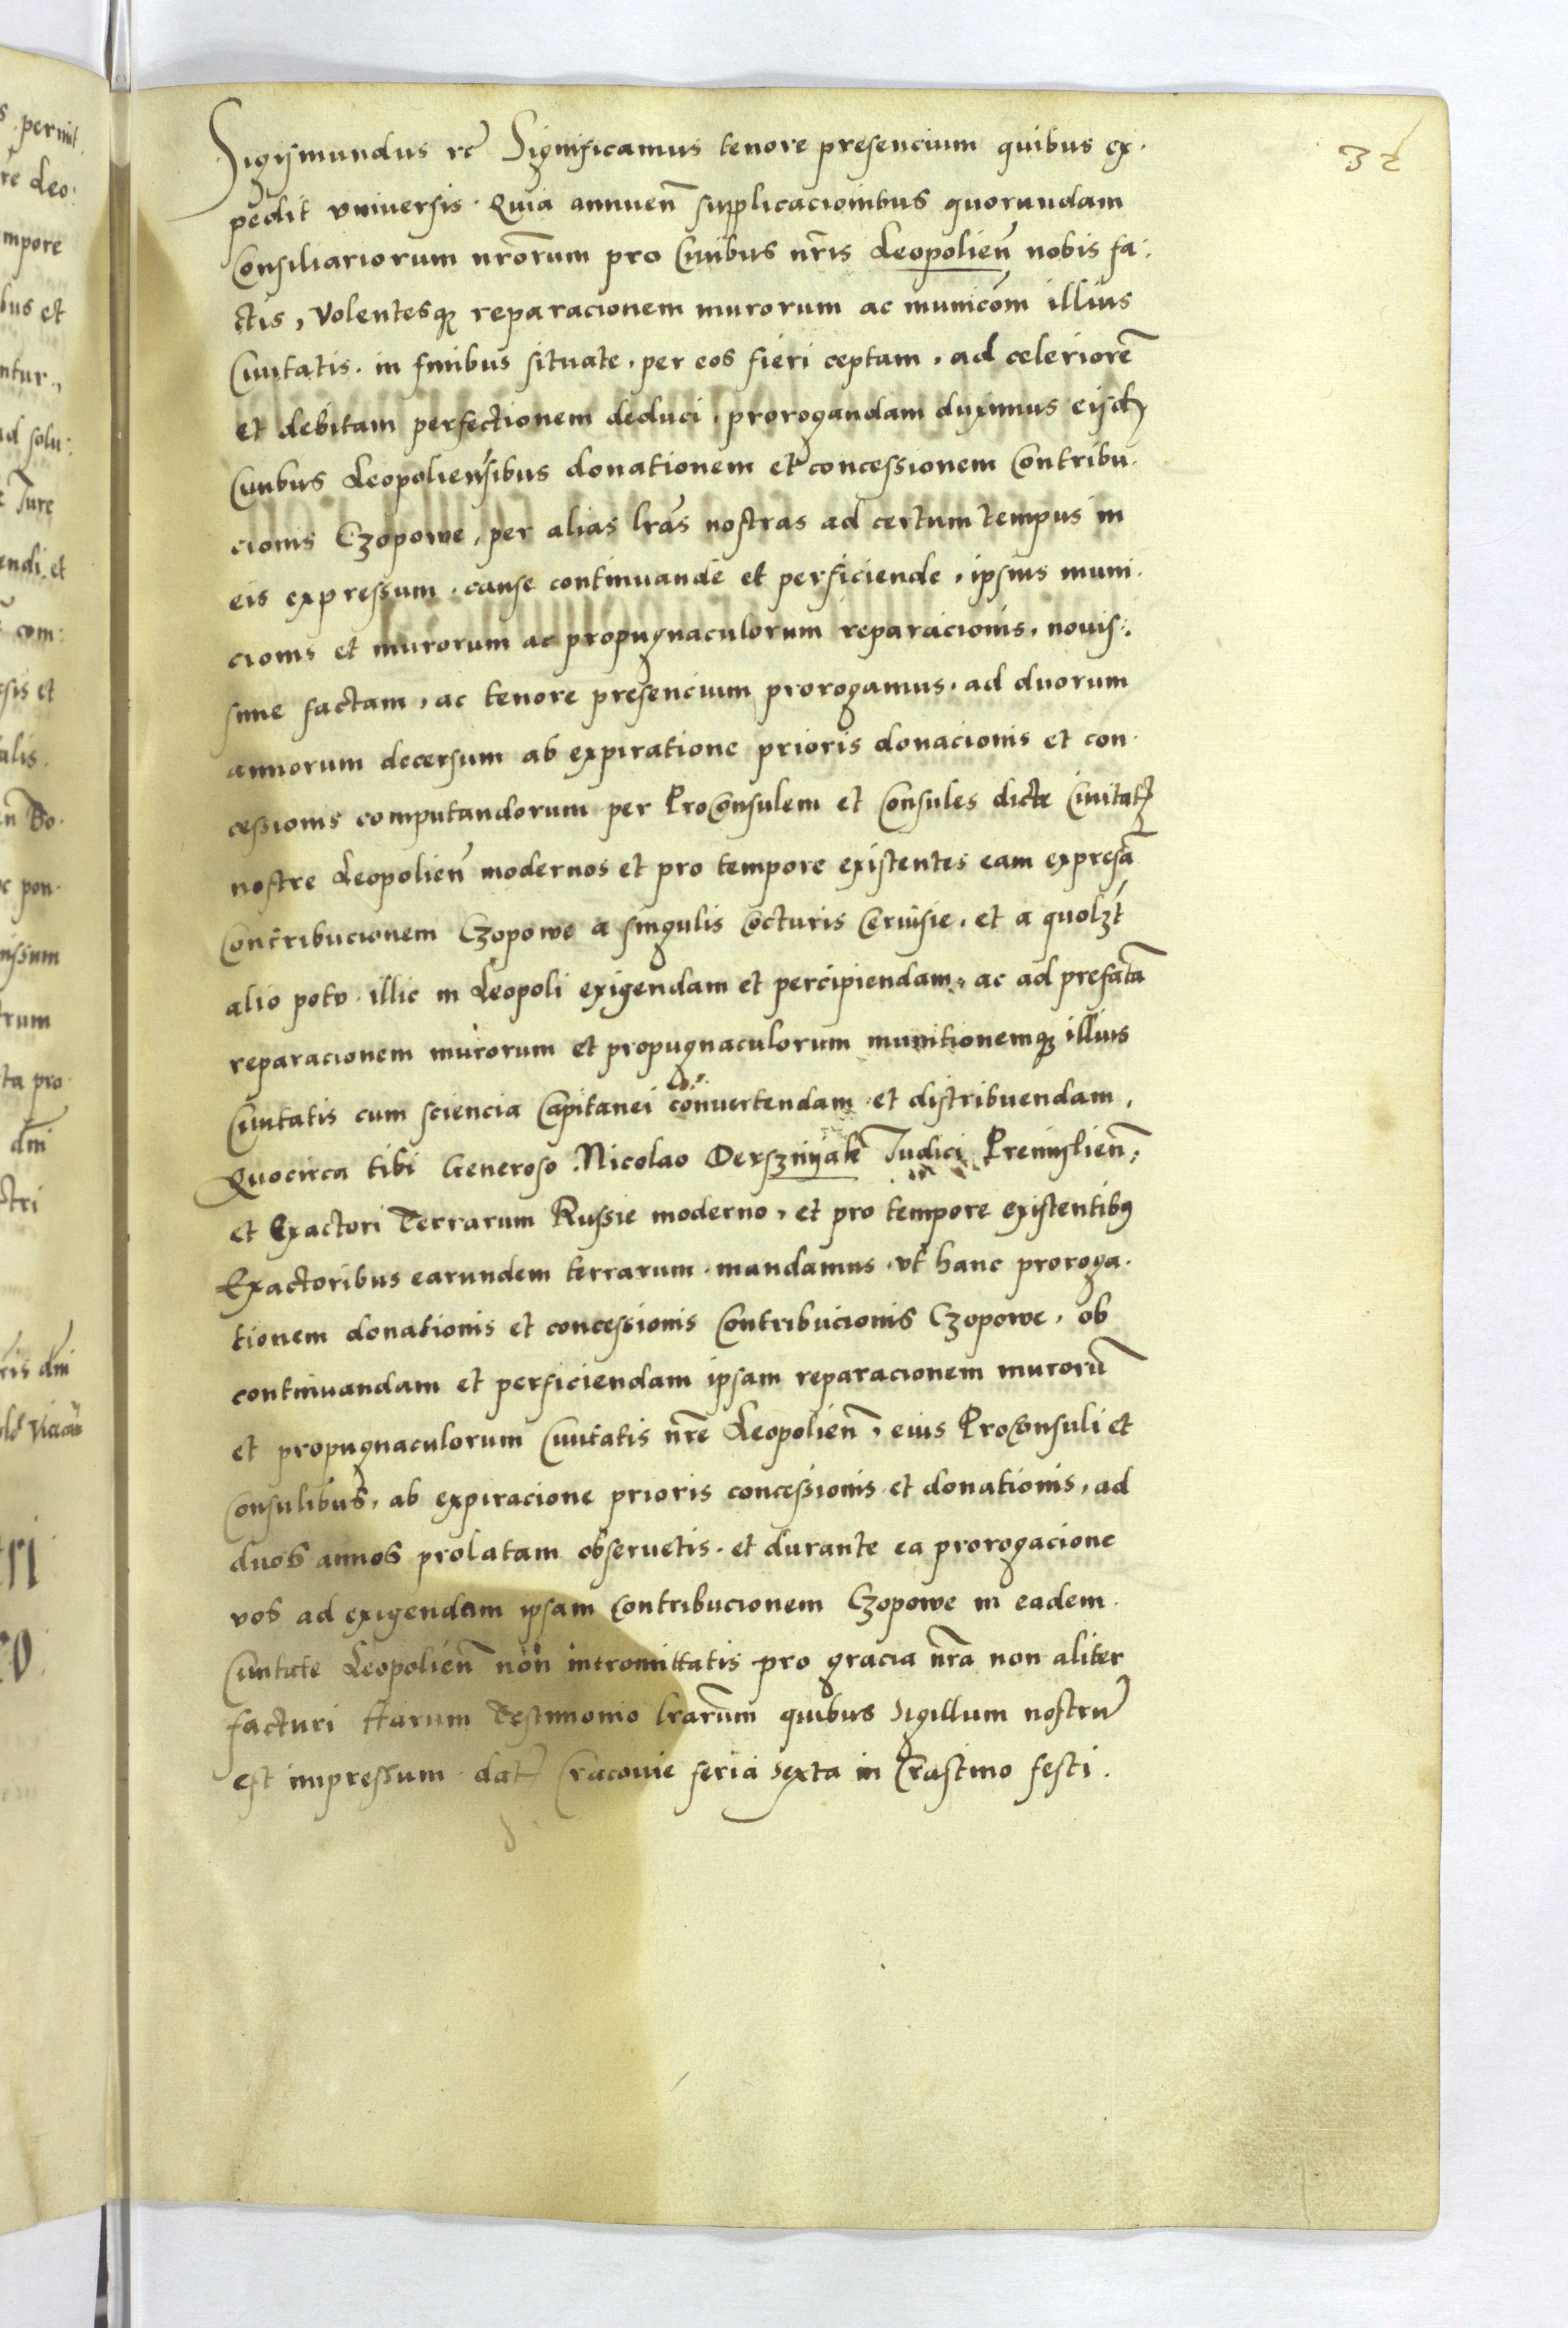 32
Sigismundus rc̃ Significamus tenore presencium quibus ex·
pedit vniuersis. Quia annuen̄ supplicacionibus quorundam
Consiliariorum nr̄orum pro Ciuibus nr̄is Leopolien̄ nobis fa·
ctis, Volentesqȝ reparacionem murorum ac municōm illius
Ciuitatis. in finibus situate, per eos fieri ceptam, ad celeriorē
et debitam perfectionem deduci, prorogandam duximus eijsdē
Ciuibus Leopoliensibus donationem et concessionem Contribu·
cionis Czopowe, per alias lr̄as nostras ad certum tempus in
eis expressum, cause continuande et perficiende, ipsius muni·
cionis et murorum ac propugnaculorum reparacionis, nouis·
sime factam, ac tenore presencium prorogamus, ad duorum
annorum decersum ab expiratione prioris donacionis et con·
cessionis computandorum per ProConsulem et Consules dicte Ciuitatȝ
nostre Leopolien̄ modernos et pro tempore existentes eam expressā
Contribucionem Czopowe a singulis Cocturis Ceruisie, et a quolȝt
alio potu illic in Leopoli exigendam et percipiendam, ac ad prefatā
reparacionem murorum et propugnaculorum munitionemqȝ illius
Ciuitatis cum sciencia Capitanei conuertendam et distribuendam,
Quocirca tibi Generoso Nicolao Dersznyak Iudici Premislien̄,
et Exactori Terrarum Russie moderno, et pro tempore existentibꝰ
Exactoribus earundem terrarum mandamus, vt hanc proroga·
tionem donationis et concessionis Contribucionis Czopowe, ob
continuandam et perficiendam ipsam reparacionem murorū
et propugnaculorum Ciuitatis nr̄e Leopolien̄, eius ProConsuli et
Consulibus, ab expiracione prioris concessionis et donationis, ad
duos annos prolatam obseruetis. et durante ea prorogacione
vos ad exigendam ipsam Contribucionem Czopowe in eadem
Ciuitate Leopolien̄ non intromittatis pro gracia nr̄a non aliter
facturi Harum Testimonio lr̄arum quibus Sigillum nostrū
est impressum. datȝ Cracouie feria Sexta in Crastino festi.